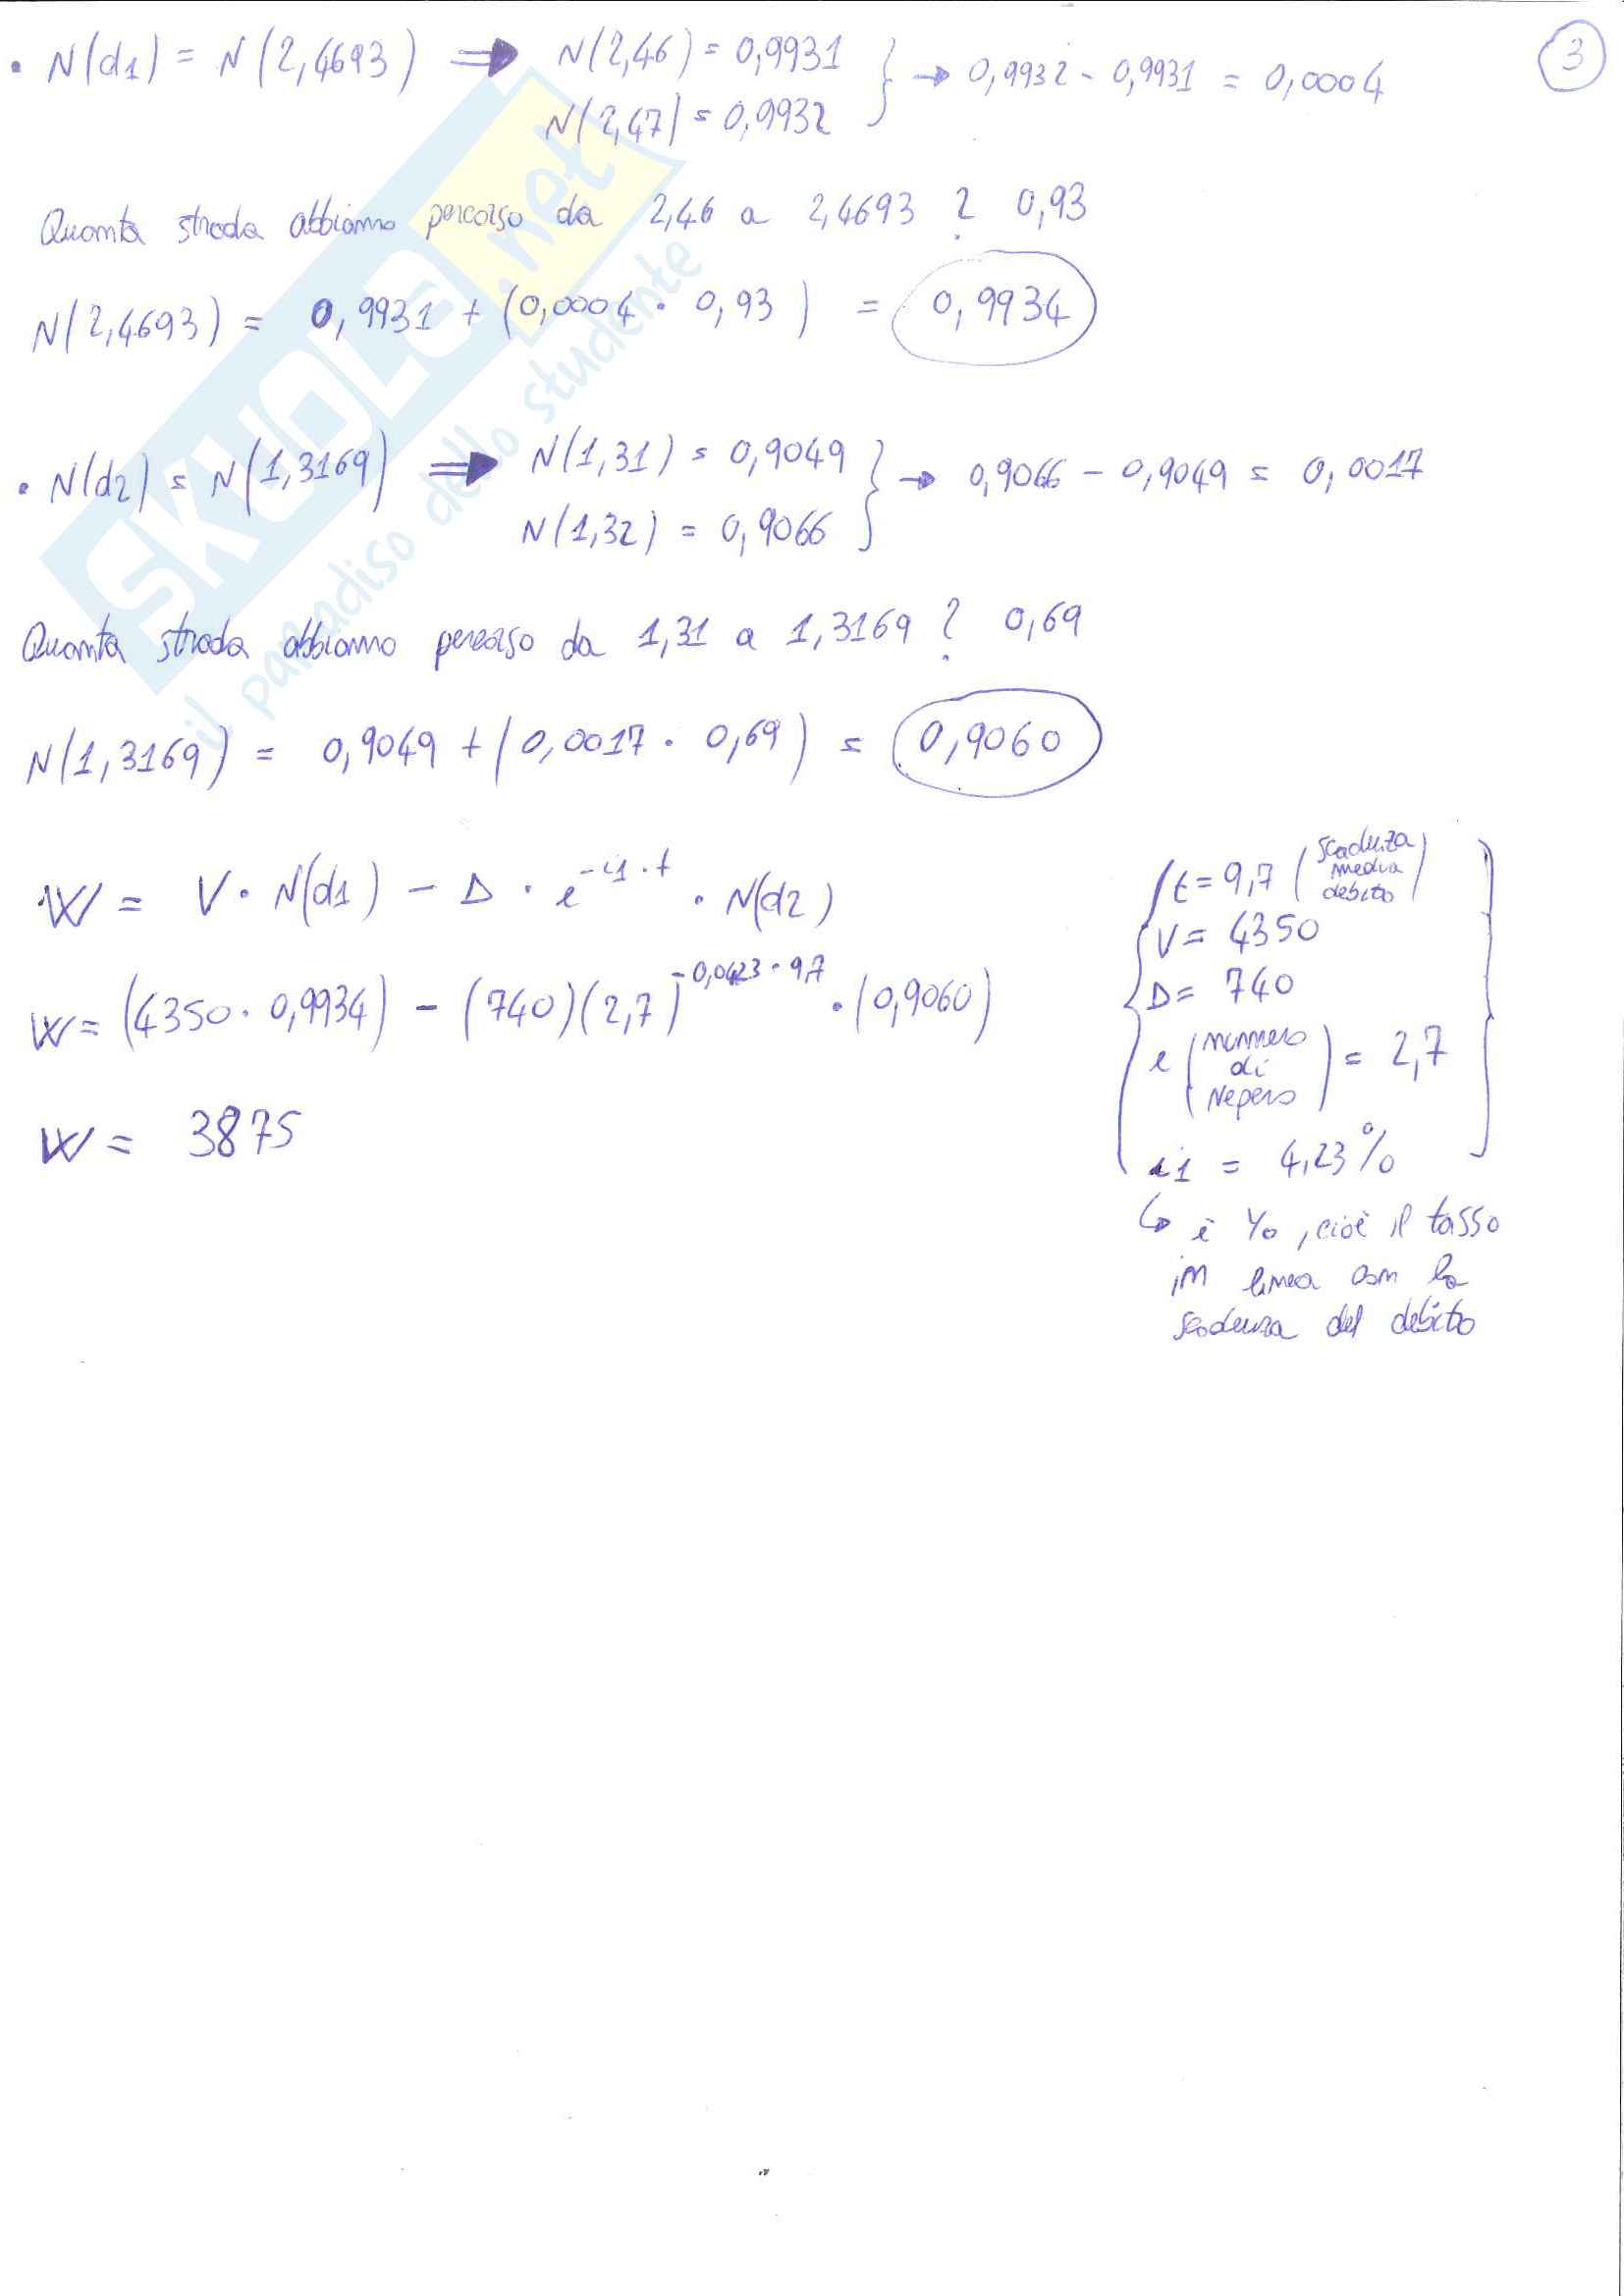 ③
• N(d1) = N(2,4693) ⇒ N(2,46) = 0,9931 } → 0,9932 - 0,9931 = 0,0004
N(2,47) = 0,9932
Quanta strada abbiamo percorso da 2,46 a 2,4693 ? 0,93
N(2,4693) = 0,9931 + (0,0004 • 0,93) = 0,9934
• N(d2) = N(1,3169) ⇒ N(1,31) = 0,9049 } → 0,9066 - 0,9049 = 0,0017
N(1,32) = 0,9066
Quanta strada abbiamo percorso da 1,31 a 1,3169 ? 0,69
N(1,3169) = 0,9049 + (0,0017 • 0,69) = 0,9060
W = V • N(d1) - D • e^-i1•t • N(d2)
W = (4350 • 0,9934) - (740)(2,7)^-0,0423•9,7 • (0,9060)
W = 3875
t = 9,7 (scadenza media debito)
V = 4350
D = 740
e (numero di Nepero) = 2,7
i1 = 4,23%
↳ è Y0, cioè il tasso
in linea con la
scadenza del debito
SKUOLA.net
il paradiso dello studente